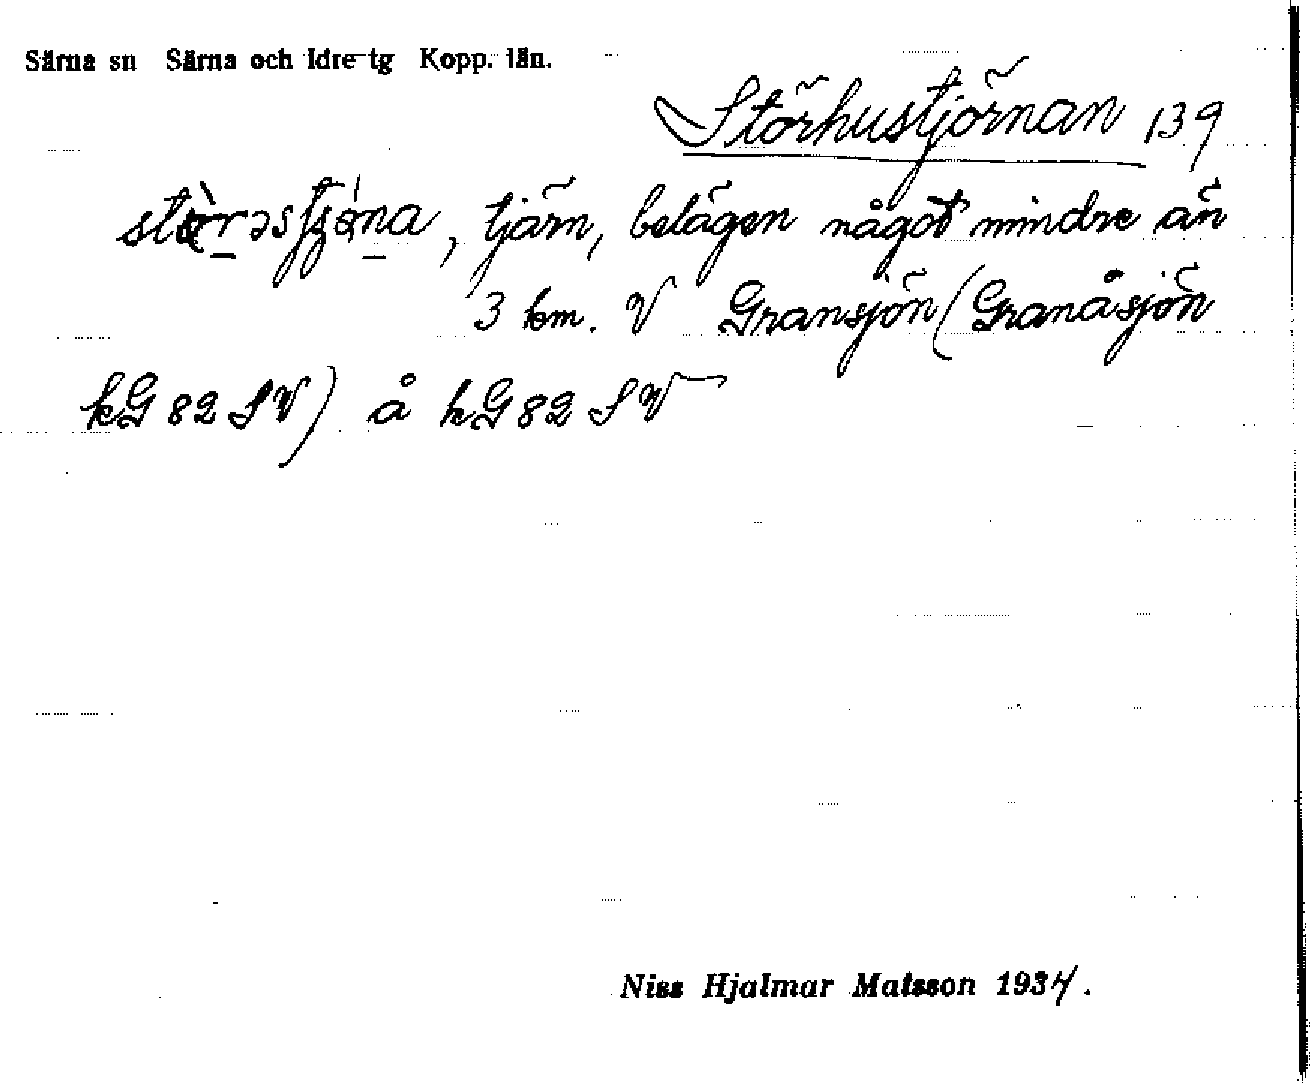 Särna sn Särna och Idre tg Kopp. län.
Störhustjörnan 139
tjärn, belägen något mindre än
3 km. V Gransjön (Granåsjön
kG 82 SV) å kG 82 SV
Niss Hjalmar Matsson 1934.